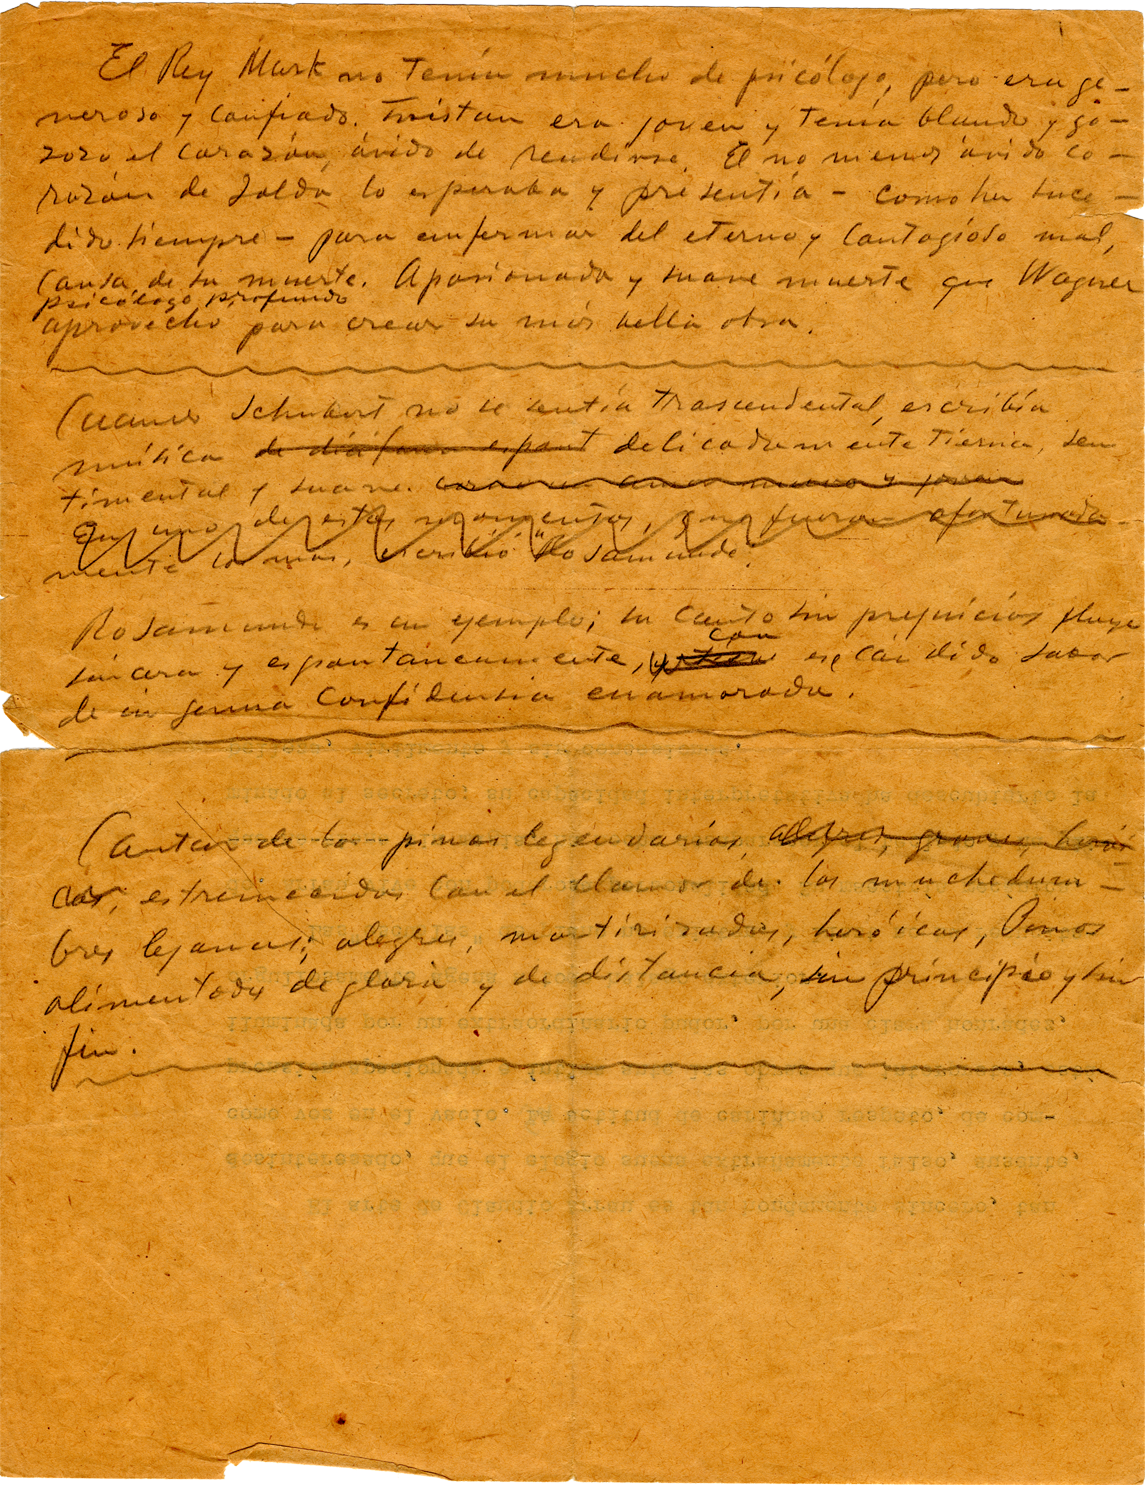 El Rey Mark no tenía mucho de psicólogo, pero era ge-
neroso y confiado. Tristan era joven y tenía blando y go-
zozo el corazón, ávido de rendirse. El no menos ávido co-
razón de Isolda lo esperaba y presentía - como ha suce-
dido siempre - para enfermar del eterno y contagioso mal,
causa de su muerte. Apasionada y suave muerte que Wagner
psicólogo profundo
aprovechó para crear su más bella obra.
Cuando Schubert no se sentía trascendental, escribía
música de diáfana delicadamente tierna, sen
timental y suave.
En uno de estos momentos, que fueron afortunada-
mente los más, escribió "Rosamunde".
Rosamunde es un ejemplo; su canto sin prejuicios fluye
sincera y espontáneamente, con ese cándido sabor
de in genua confidensia enamorada.
Cantar de los pinos legendarios, alegres, graves, herói
cos, estremecidos con el clamor de las muchedum-
bres lejanas; alegres, martirizados, heróicos, Pinos
alimentados de gloria y de distancia, sin principio y sin
fin.